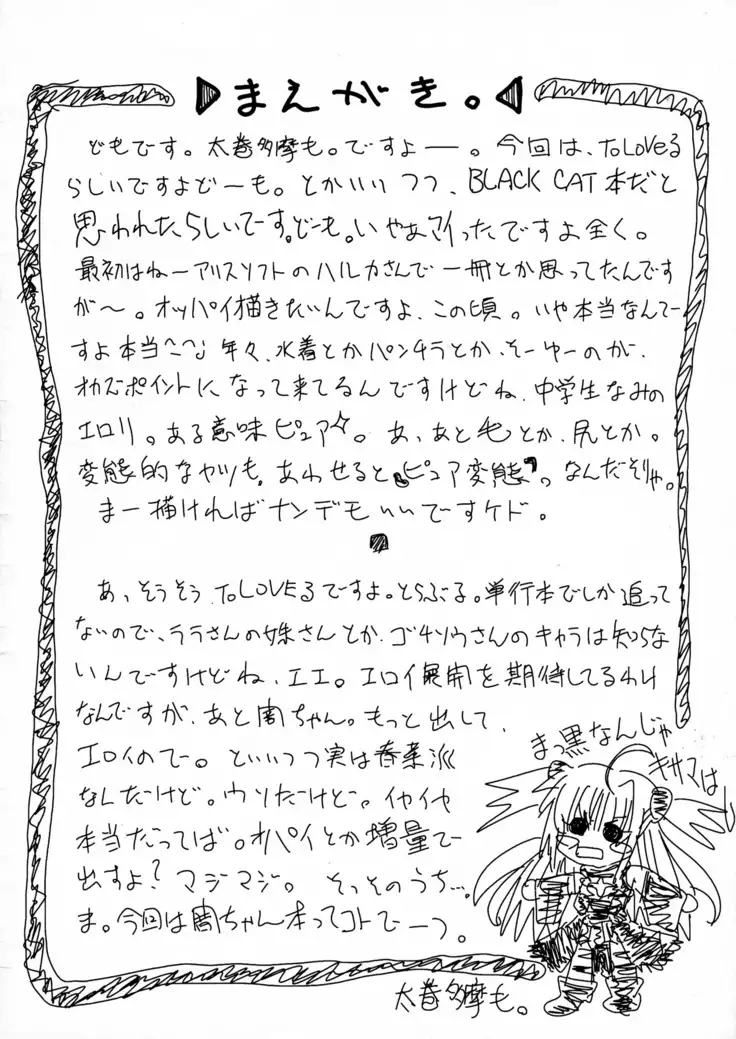 まえがき。
どもです。太巻多摩も。ですよー。今回は、ToLOVEる
らしいですよどーも。とかいいつつ、BLACK CAT本だと
思われたらしいでーす。どーも。いやあマイったですよ全く。
最初はねーアリスソフトのハルカさんで一冊とか思ってたんです
が〜。オッパイ描きたいんですよ、この頃。いや本当なんで
すよ本当〜〜 年々、水着とかパンチラとか、そーゆーのが、
オカズポイントになって来てるんですけどね、中学生なみの
エロリ。ある意味ピュア☆。あ、あと毛とか、尻とか。
変態的なヤツも。あわせると「ピュア変態」。なんだそりゃ。
まー描ければナンデモいいですケド。
あ、そうそう、ToLOVEるですよ。とらぶる。単行本でしか追って
ないので、ララさんの妹さんとか、ゴチソウさんのキャラは知らな
いんですけどね、エエ。エロイ展開を期待してるわけ
なんですが、あと闇ちゃん。もっと出して、
エロいので。といいつつ実は春菜派
なんだけど。ウソだけど。イヤイヤ
本当だってば。オパイとか増量で
出すよ？マジマジ。そっそのうち…。
ま。今回は闇ちゃん本ってコトでーっ。
まっ黒なんじゃ
キサマは
太巻多摩も。